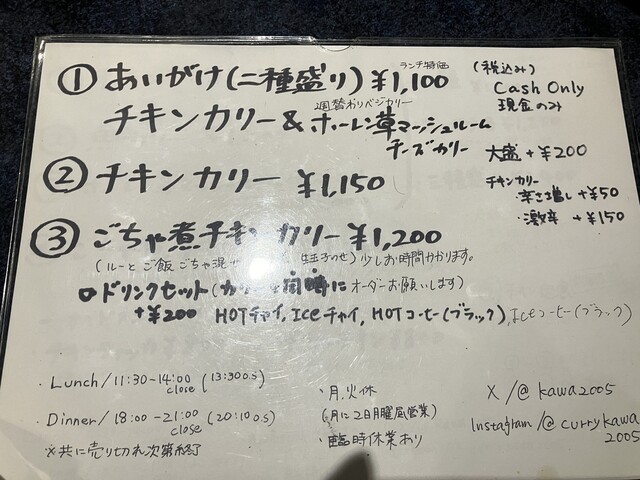 ランチ特価
① あいがけ(二種盛り) ¥1,100
(税込み)
Cash Only
現金のみ
週替わりベジカリー
チキンカリー & ホーレン草マッシュルーム
チーズカリー
大盛 +¥200
② チキンカリー ¥1,150
チキンカリー
・辛さ増し +¥50
・激辛 +¥150
③ ごちゃ煮チキンカリー ¥1,200
(ルーとご飯ごちゃ混 生玉子のせ) 少しお時間かかります。
ドリンクセット(カリーと同時にオーダーお願いします)
+¥200 HOTチャイ, Iceチャイ, HOTコーヒー(ブラック), Iceコーヒー(ブラック)
・Lunch/11:30-14:00 (13:30 O.S)
close
・Dinner/18:00-21:00 (20:10 O.S)
close
※共に売り切れ次第終了
・月.火休
(月に2日月曜風営業)
・臨時休業あり
X/@kawa2005
Instagram/@currykawa
2005